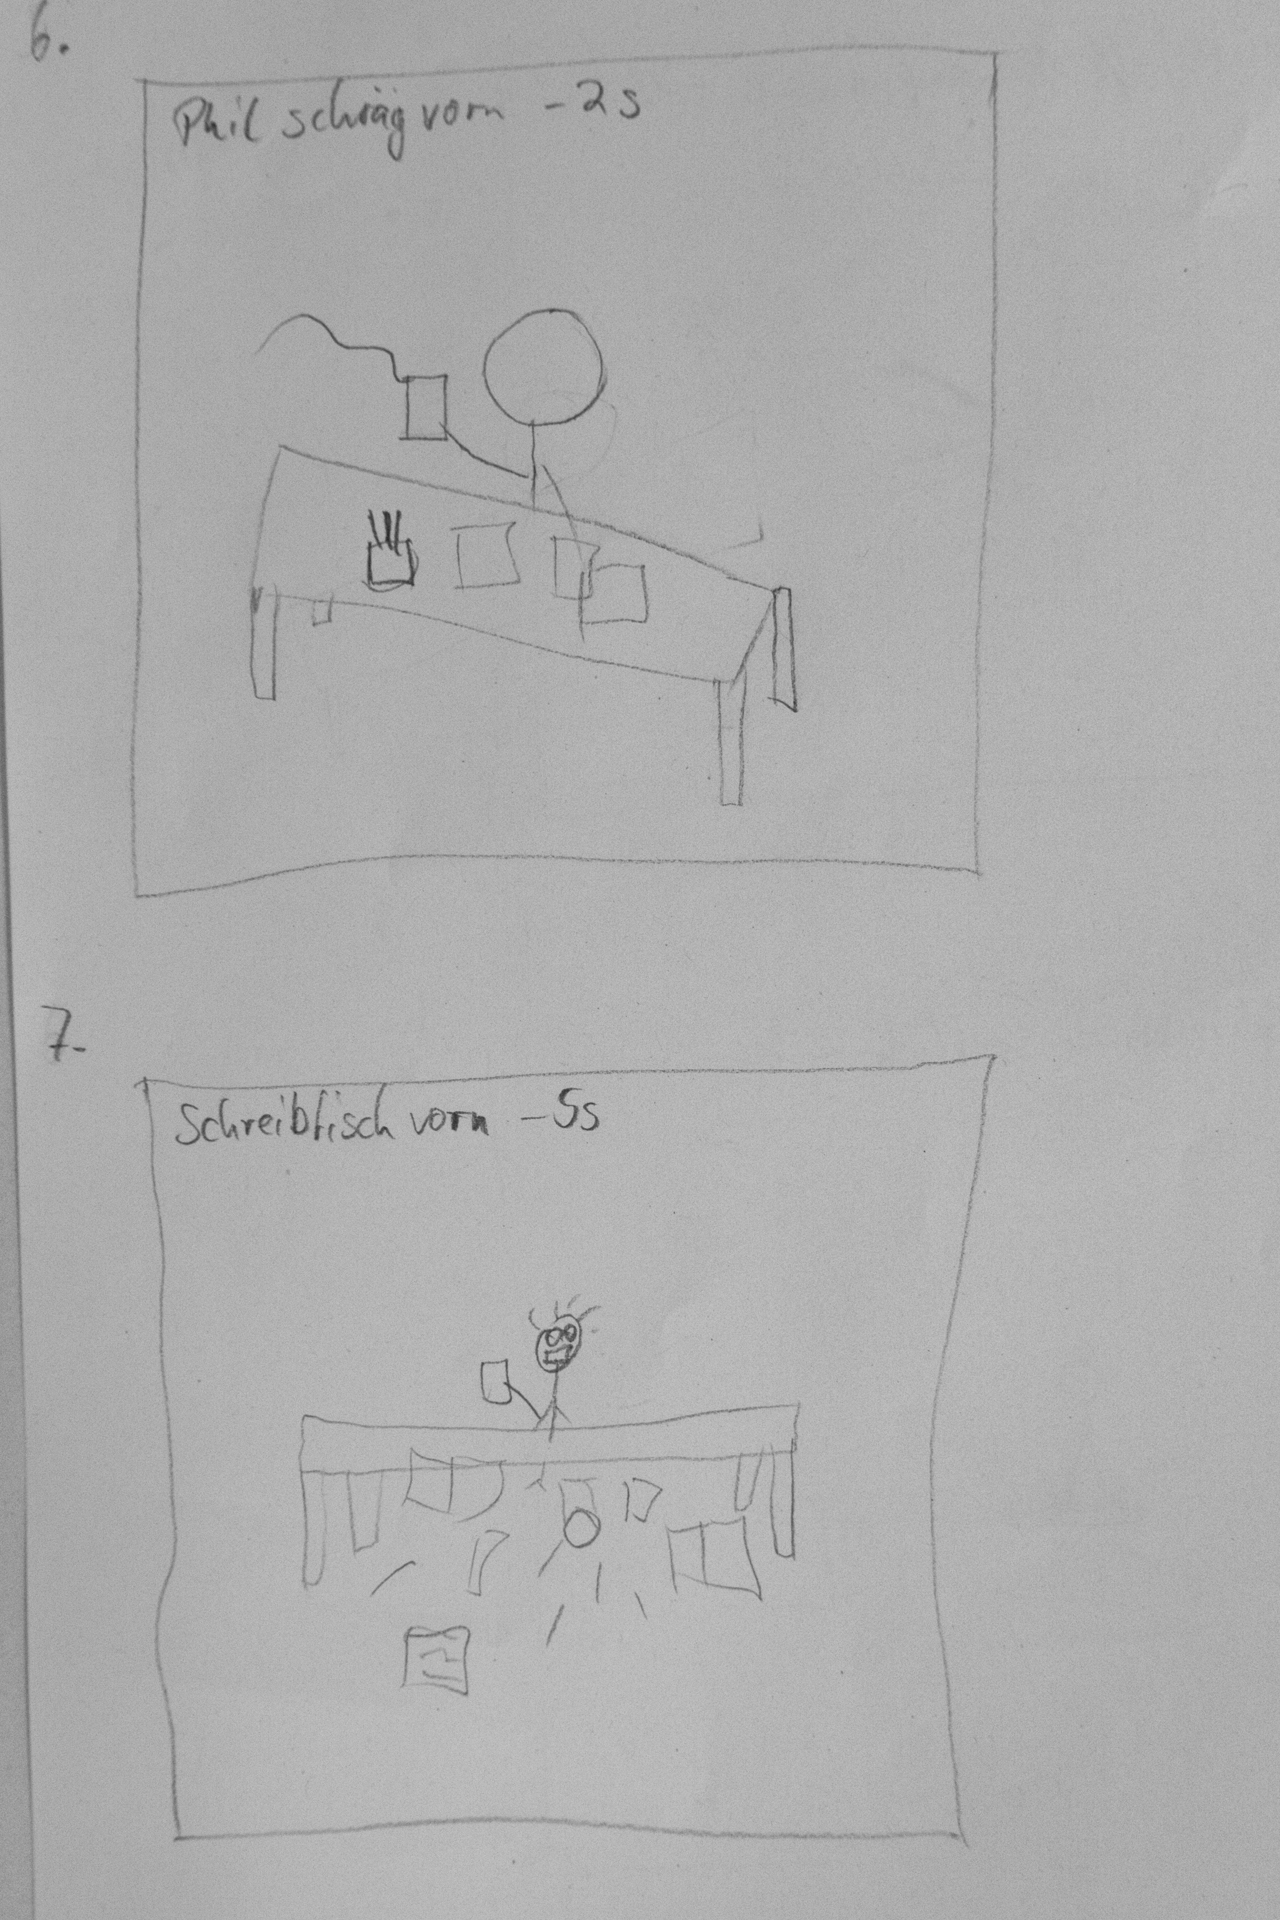 6.
Phil schräg vorn - 2s
7.
Schreibtisch vorn - 5s